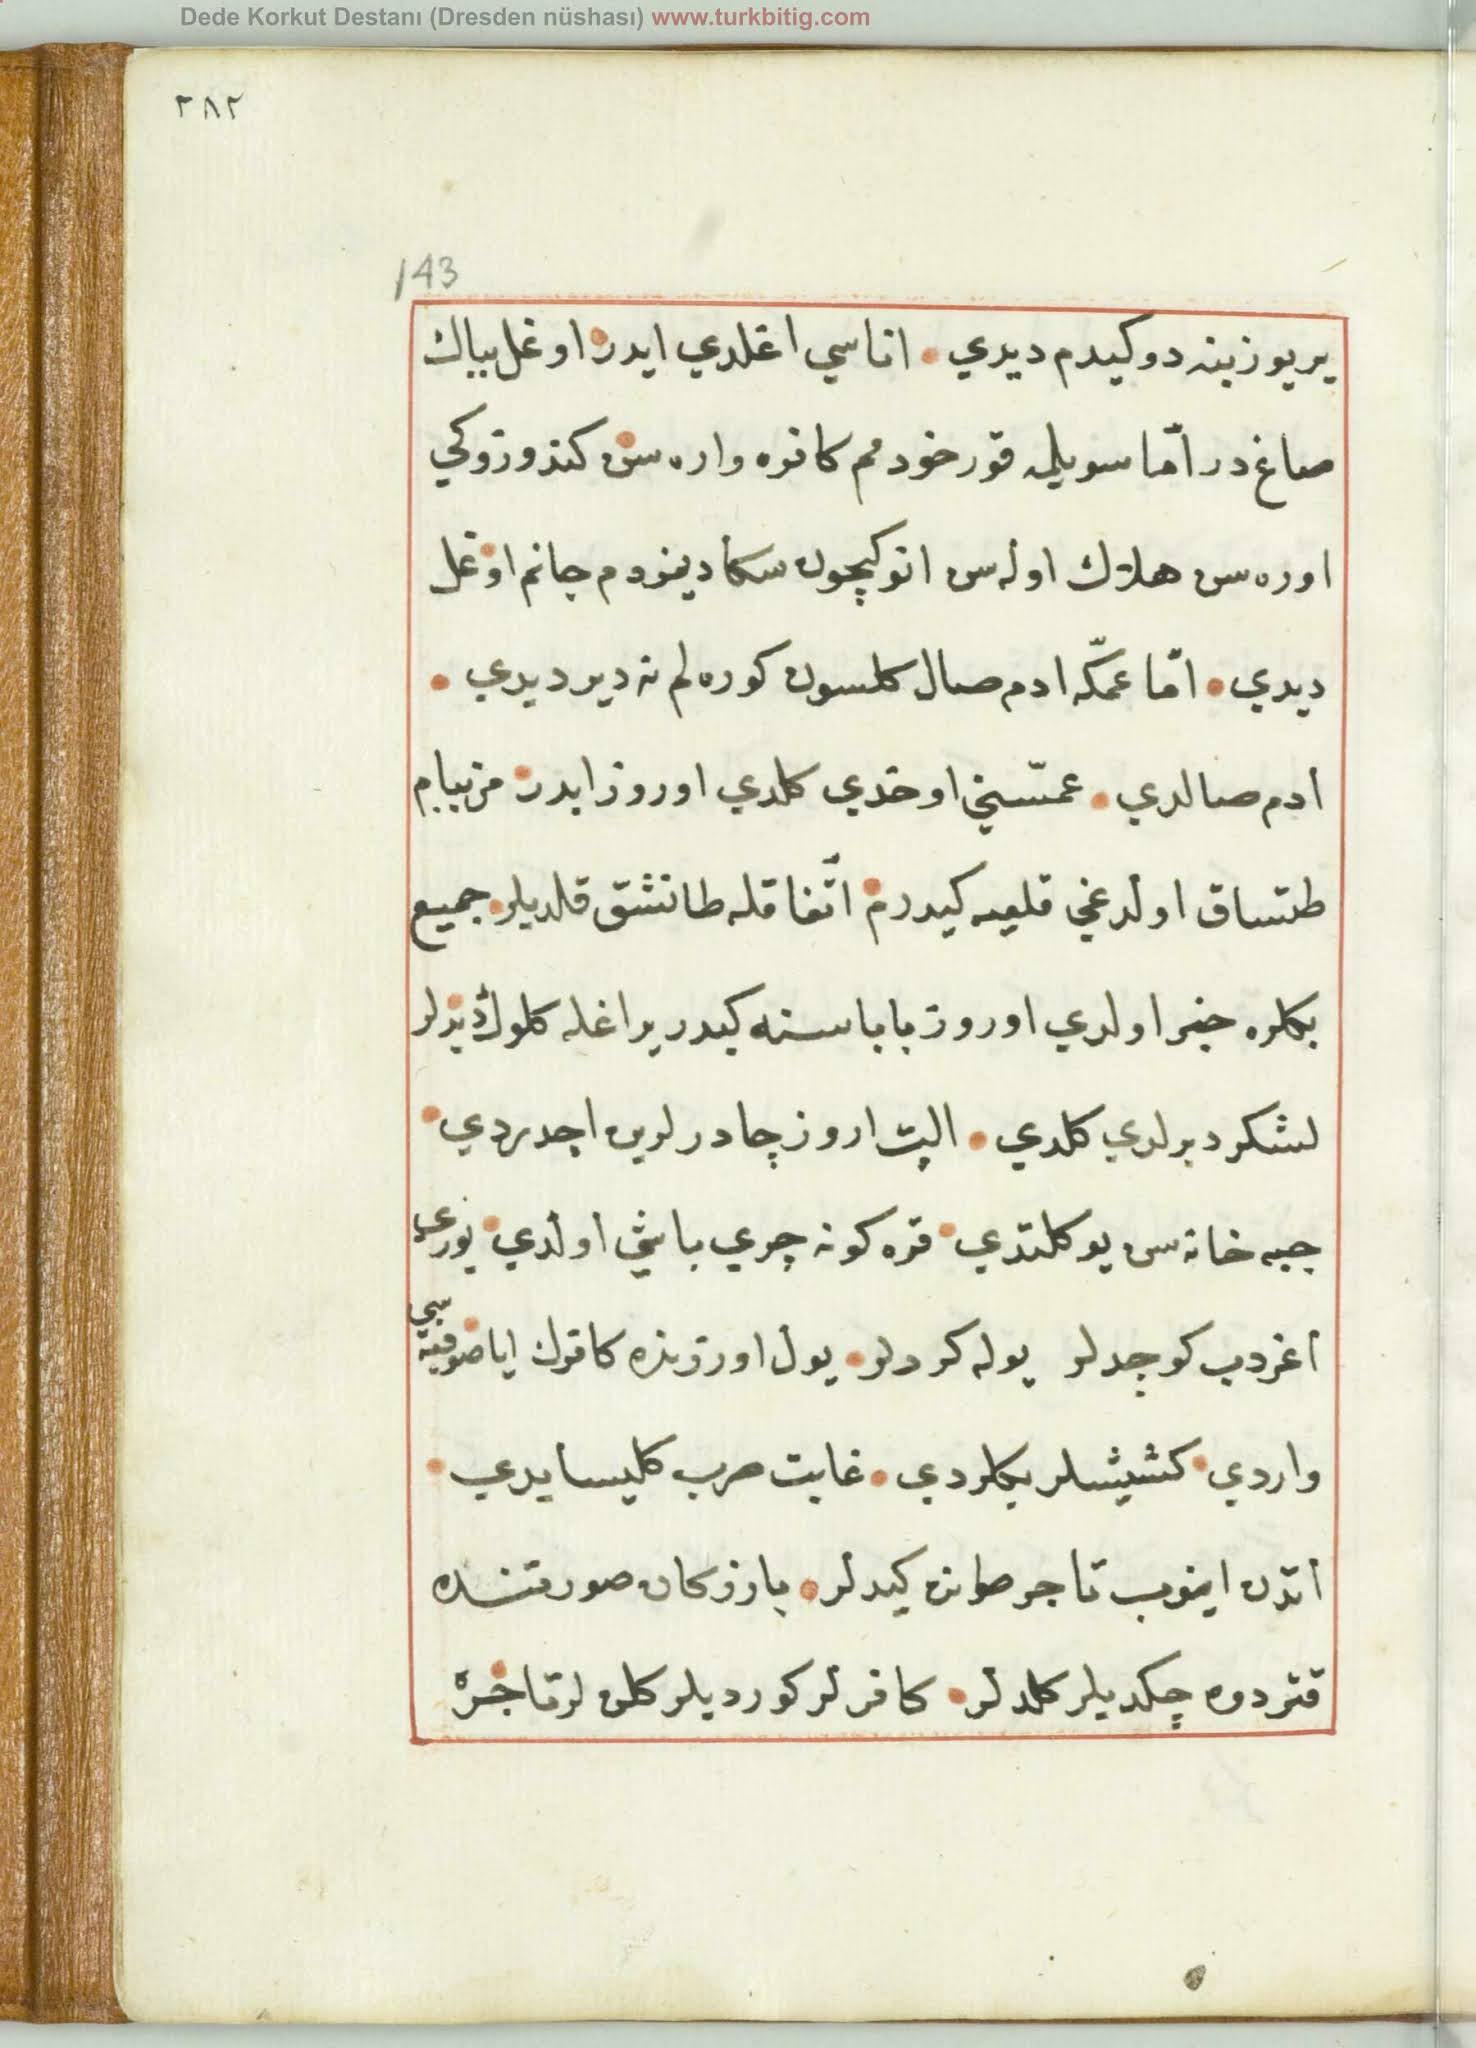 Dede Korkut Destanı (Dresden nüshası) www.turkbitig.com
٢٨٢
143
ير يوزينه دوكيدم ديدي • اناسي اغلدي ايدر اوغل ببك
صاغ در امّا سويلمه قورخودمم كافره واره سن كندوزوكي
اوره سن هلاك اوله سن انوكيچون سكا ديمزدم جانم اوغل
ديدي • امّا عمّكه ادم صال كلسون كوره لم نه دير ديدي •
ادم صالدي • عمّسني اوخدي كلدي اوروز ايدر من ببام
طتساق اولدغي قلعيه كيدرم اتّفاقله طانشق قلديلر • جميع
بكلره خبر اولدي اوروز باباسنه كيدر يراغله كلوك ديديلر
لشكر ديرلدي كلدي • الپ اروز چادرلرين اچدردي •
جبه خانه سن يوكلتدي • قره كونه چري باشي اولدي • بورى
اغردب كوچدلر يوله كردلر • يول اوزرنده كافرك اياصوفيه سي
واردي • كشيشلر بكلردي • غايت صرب كليسايدي •
اتدن اينوب تاجر طونن كيدلر • بازركان صورتنده
قتر دوه چكديلر كلدلر • كافرلر كورديلر كلن لر تاجره